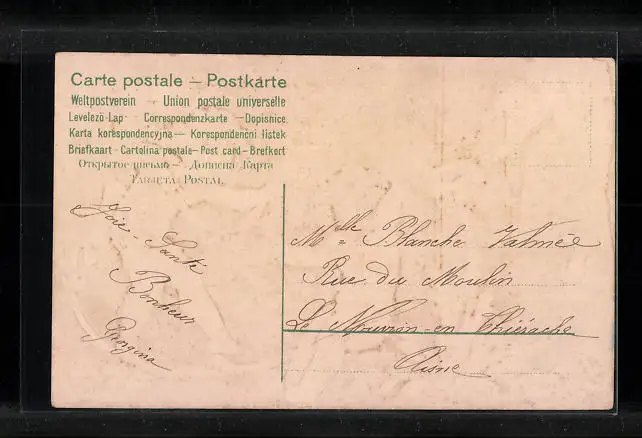 Carte postale — Postkarte
Weltpostverein — Union postale universelle
Levelező-Lap — Correspondenzkarte — Dopisnice
Karta korespondencyjna — Korespondenční lístek
Briefkaart — Cartolina postale — Post card — Brefkort
Открытое письмо — Дописна Карта
Tarjeta Postal
Joie - Santé
Bonheur
Georgina
Mlle Blanche Valmée
Rue du Moulin
Le Nouvion-en Thiérache
Aisne